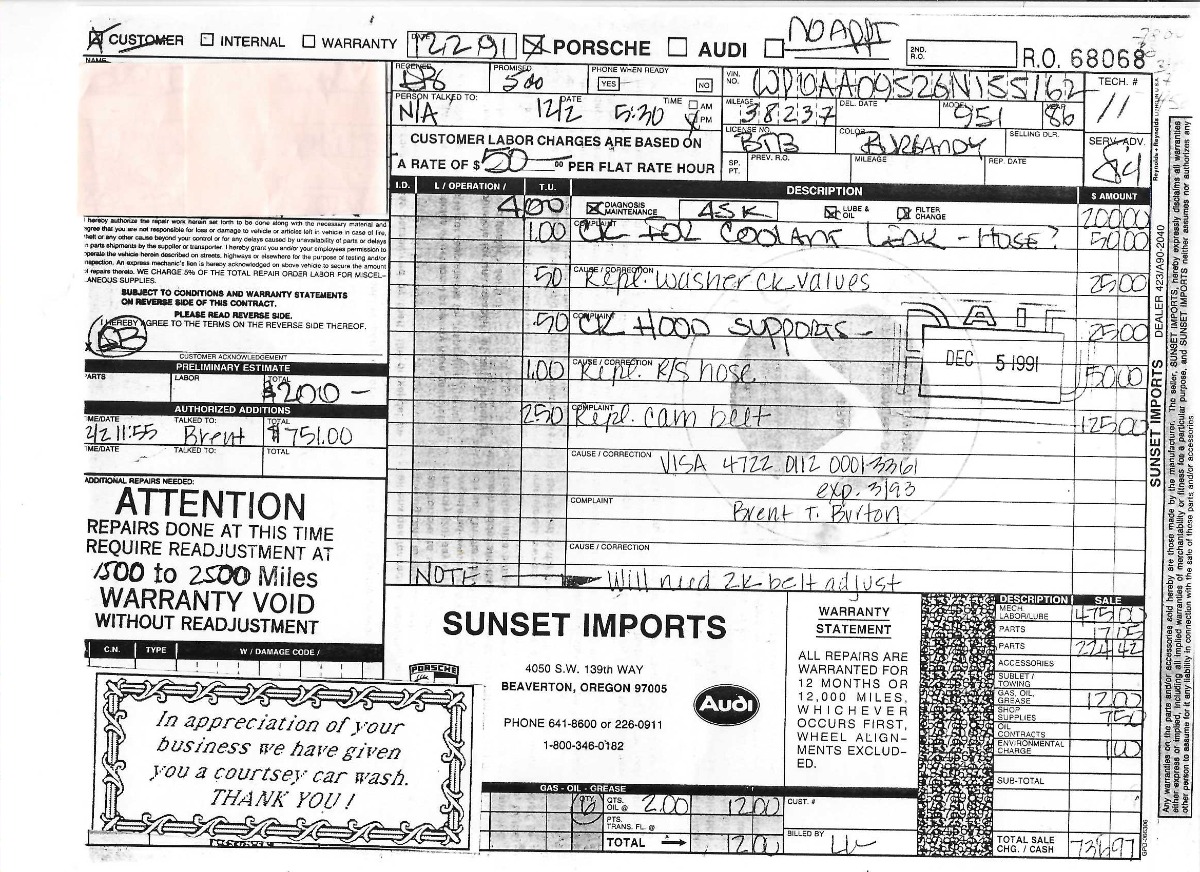 CUSTOMER INTERNAL WARRANTY DATE 12291 PORSCHE AUDI NO APPT 2ND. R.O. R.O. 68068
NAME
RECEIVED PROMISED 500 PHONE WHEN READY YES NO
VIN. NO. WP0AA0952GN155162 TECH. # 11
PERSON TALKED TO: N/A DATE 12/2 TIME 5:30 AM PM
MILEAGE 38237 DEL. DATE MODEL 951 YEAR 86
CUSTOMER LABOR CHARGES ARE BASED ON
A RATE OF $ 50 .00 PER FLAT RATE HOUR
LICENSE NO. BTB COLOR BURGANDY SELLING DLR. SERV. ADV. 84
SP. PT. PREV. R.O. MILEAGE REP. DATE
I.D. L / OPERATION / T.U. DESCRIPTION $ AMOUNT
4.00 DIAGNOSIS MAINTENANCE 45K LUBE & OIL FILTER CHANGE 200 00
1.00 COMPLAINT CK FOR COOLANT LEAK - HOSE? 50 00
50 CAUSE / CORRECTION Repl. washer ck valves 25 00
50 COMPLAINT CK HOOD SUPPORTS - 25 00
1.00 CAUSE / CORRECTION Repl. P/S hose 50 00
250 COMPLAINT Repl. cam belt 125 00
CAUSE / CORRECTION VISA 4722 0112 0001 3361
exp. 3/93
COMPLAINT Brent T. Burton
CAUSE / CORRECTION
NOTE Will need 2K belt adjust
PAID
DEC 5 1991
I hereby authorize the repair work herein set forth to be done along with the necessary material and
agree that you are not responsible for loss or damage to vehicle or articles left in vehicle in case of fire,
theft or any other cause beyond your control or for any delays caused by unavailability of parts or delays
in parts shipments by the supplier or transporter. I hereby grant you and/or your employees permission to
operate the vehicle herein described on streets, highways or elsewhere for the purpose of testing and/or
inspection. An express mechanic's lien is hereby acknowledged on above vehicle to secure the amount
of repairs thereto. WE CHARGE 5% OF THE TOTAL REPAIR ORDER LABOR FOR MISCEL-
LANEOUS SUPPLIES.
SUBJECT TO CONDITIONS AND WARRANTY STATEMENTS
ON REVERSE SIDE OF THIS CONTRACT.
PLEASE READ REVERSE SIDE.
I HEREBY AGREE TO THE TERMS ON THE REVERSE SIDE THEREOF.
CUSTOMER ACKNOWLEDGEMENT
PRELIMINARY ESTIMATE
PARTS LABOR TOTAL $200 -
AUTHORIZED ADDITIONS
TIME/DATE 12/2 11:55 TALKED TO: Brent TOTAL $751.00
TIME/DATE TALKED TO: TOTAL
ADDITIONAL REPAIRS NEEDED:
ATTENTION
REPAIRS DONE AT THIS TIME
REQUIRE READJUSTMENT AT
1500 to 2500 Miles
WARRANTY VOID
WITHOUT READJUSTMENT
C.N. TYPE W / DAMAGE CODE /
In appreciation of your
business we have given
you a courtsey car wash.
THANK YOU !
SUNSET IMPORTS
PORSCHE
4050 S.W. 139th WAY
BEAVERTON, OREGON 97005
Audi
PHONE 641-8600 or 226-0911
1-800-346-0182
GAS - OIL - GREASE
QTY. QTS. OIL @ 2.00 12 00
PTS. TRANS. FL @
TOTAL 12 00
WARRANTY
STATEMENT
ALL REPAIRS ARE
WARRANTED FOR
12 MONTHS OR
12,000 MILES,
WHICHEVER
OCCURS FIRST,
WHEEL ALIGN-
MENTS EXCLUD-
ED.
CUST. #
BILLED BY
DESCRIPTION SALE
MECH. LABOR/LUBE 475 00
PARTS 17 05
PARTS 224 42
ACCESSORIES
SUBLET / TOWING
GAS, OIL, GREASE 12 00
SHOP SUPPLIES 7 50
OIL CONTRACTS
ENVIRONMENTAL CHARGE 1 00
SUB-TOTAL
TOTAL SALE CHG. / CASH 736 97
SUNSET IMPORTS DEALER 423/A90-2040
Any warranties on the parts and/or accessories sold hereby are those made by the manufacturer. The seller, SUNSET IMPORTS, hereby expressly disclaims all warranties
either express or implied, including all implied warranties of merchantability or fitness for a particular purpose, and SUNSET IMPORTS neither assumes nor authorizes any
other person to assume for it any liability in connection with the sale of those parts and/or accessories.